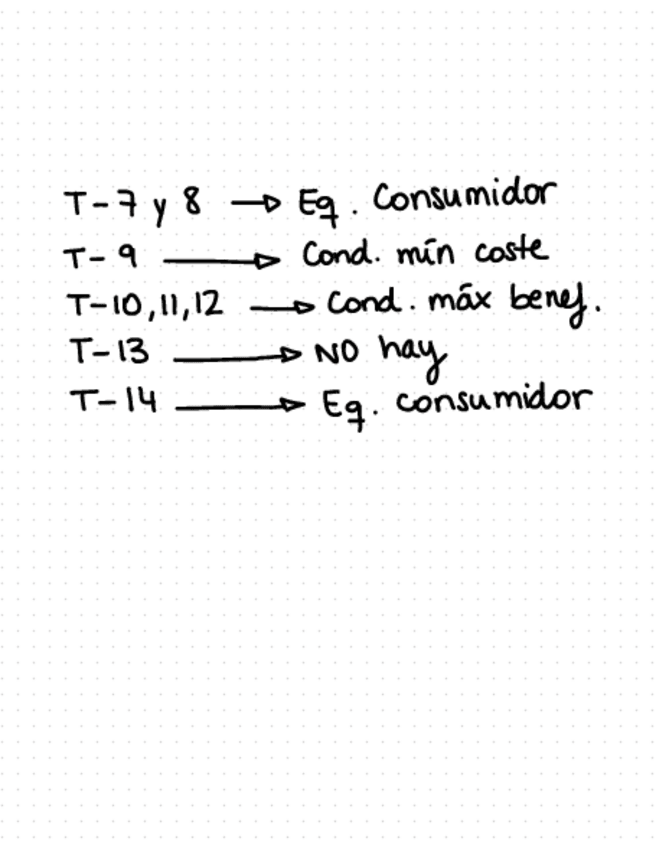 T-7 y 8 → Eq. Consumidor
T-9 → Cond. mín coste
T-10,11,12 → Cond. máx benef.
T-13 → NO hay
T-14 → Eq. consumidor